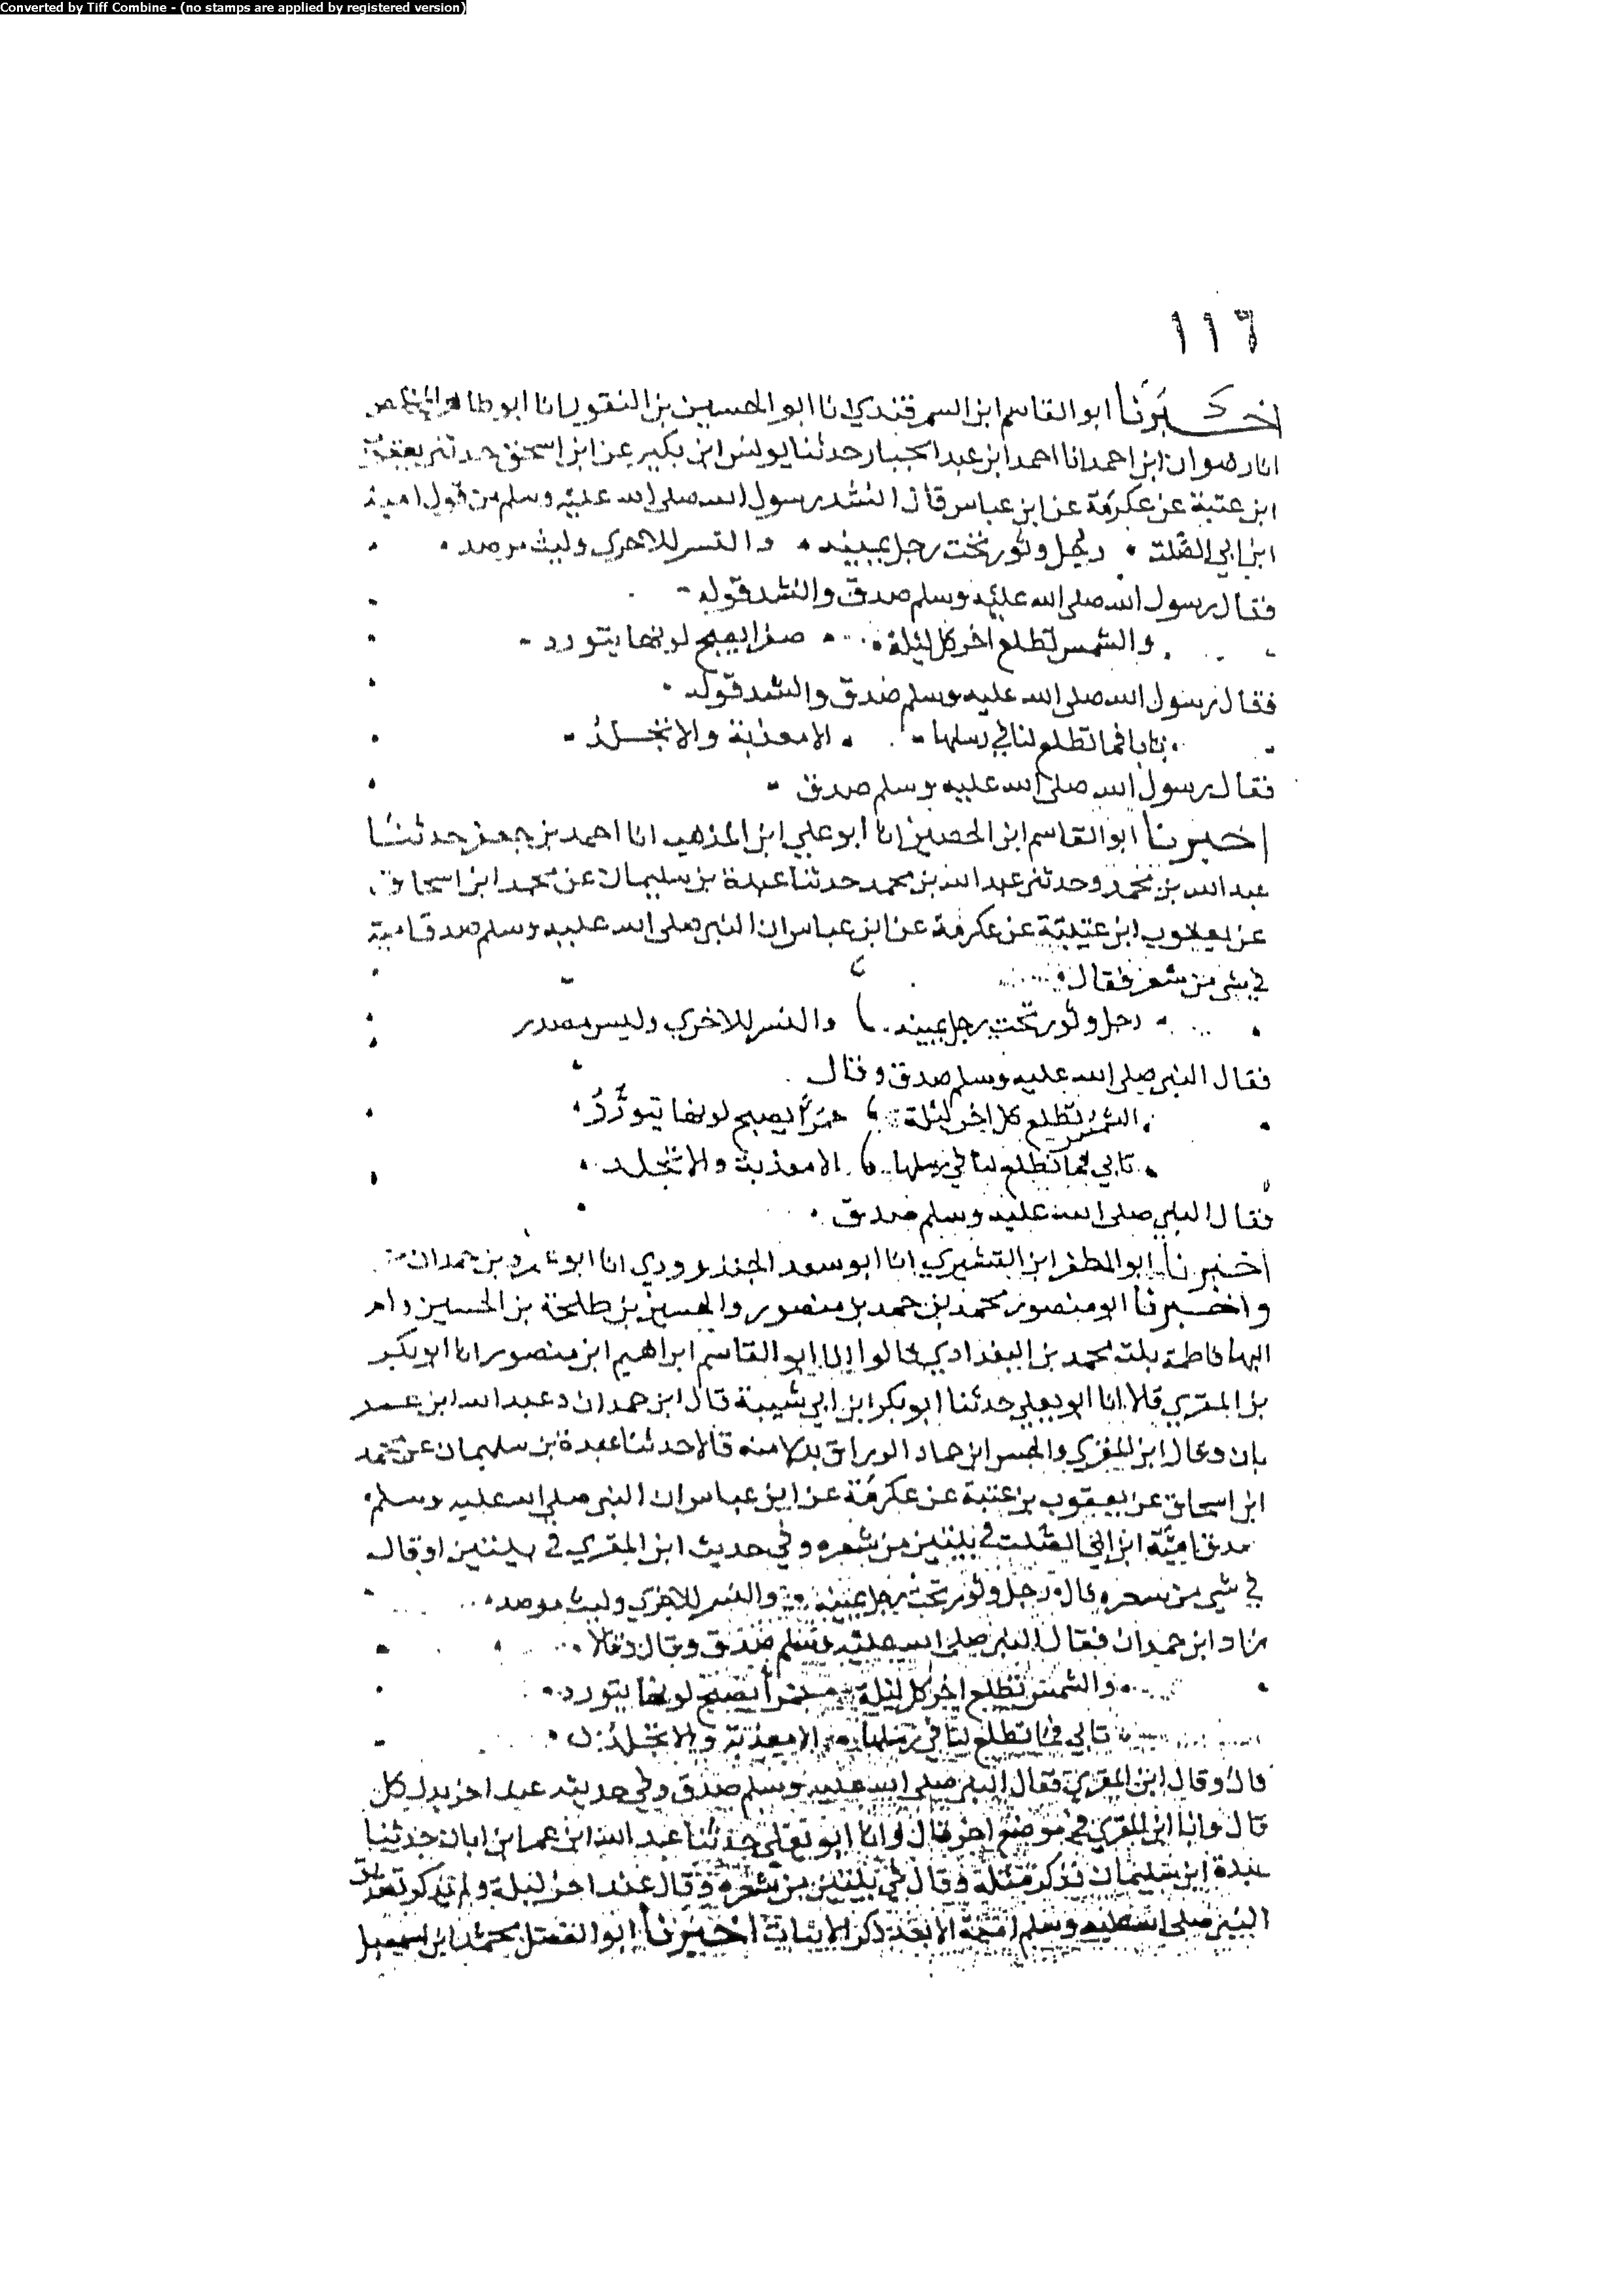 Converted by Tiff Combine - (no stamps are applied by registered version)
١١٦
اخبرنا ابو القاسم ابن السمرقندي انا ابو الحسين بن النقور انا ابو طاهر المخلص
انا رضوان ابن احمد انا احمد ابن عبد الجبار حدثنا يونس ابن بكير عن ابن اسحق حدثني يعقوب
ابن عتبة عن عكرمة عن ابن عباس قال انشد رسول الله صلى الله عليه وسلم من قول امية
ابن ابي الصلت رجل وثور تحت رجل يمينه والنسر للاخرى وليث مرصد
فقال رسول الله صلى الله عليه وسلم صدق وانشد قوله
والشمس تطلع اخر كل ليلة صفرا يصبح لونها يتورد
فقال رسول الله صلى الله عليه وسلم صدق وانشد قوله
تابا فما تطلع لنا في رسلها الا معذبة والا تجلد
فقال رسول الله صلى الله عليه وسلم صدق
اخبرنا ابو القاسم ابن الحصين انا ابو علي ابن المذهب انا احمد بن جعفر حدثنا
عبد الله بن محمد وحدثني عبد الله بن محمد حدثنا عبدة بن سليمان عن محمد ابن اسحاق
عن يعقوب ابن عتيبة عن عكرمة عن ابن عباس ان النبي صلى الله عليه وسلم صدق امية
في شي من شعر فقال
رجل وثور تحت رجل يمينه والنسر للاخري وليس مصدر
فقال النبي صلى الله عليه وسلم صدق وقال
الشمس تطلع كل اخر ليلة حمرا يصبح لونها يتورد
تابي فما تطلع لنا في رسلها الا معذبة والا تجلد
فقال النبي صلى الله عليه وسلم صدق
اخبرنا ابو المظفر ابن القشيري انا ابو سعد الجنزرودي انا ابو عمرو بن حمدان
واخبرنا ابو منصور محمد بن حمد بن منصور والحسين بن طلحة بن الحسين وام
البها فاطمة بنت محمد بن البغدادي قالوا انا ابو القاسم ابراهيم ابن منصور انا ابو بكر
بن المقري قالا انا ابو يعلي حدثنا ابو بكر ابن ابي شيبة قال ابن حمدان وعبد الله ابن عمر
بان وقال ابن المقري والحسن ابن حماد الوراق بدلا منه قالا حدثنا عبدة بن سليمان عن محمد
ابن اسحاق عن يعقوب بن عتبة عن عكرمة عن ابن عباس ان النبي صلى الله عليه وسلم
صدق امية ابن ابي الصلت في بيتين من شعره وفي حديث ابن المقري في بيتين او قال
في شي من شعره قال رجل وثور تحت رجل يمينه والنسر للاخري وليث موصد
زاد ابن حمدان فقال النبي صلى الله عليه وسلم صدق وقال وقالا
والشمس تطلع اخر كل ليلة حمرا يصبح لونها يتورد
تابي فما تطلع لنا في رسلها الا معذبة والا تجلد
قال وقال ابن المقري فقال النبي صلى الله عليه وسلم صدق وفي حديثه عبد اخر بدل كل
قال وانا ابن المقري في موضع اخر قال وانا ابو يعلى حدثنا عبد الله ابن عمر ابن ابان حدثنا
عبدة ابن سليمان فذكر مثله وقال في بيتين من شعره وقال عند اخر ليلة ولم يذكر تصديق
النبي صلى الله عليه وسلم امية الا بعد ذكر الابيات اخبرنا ابو الفضل محمد ابن اسمعيل